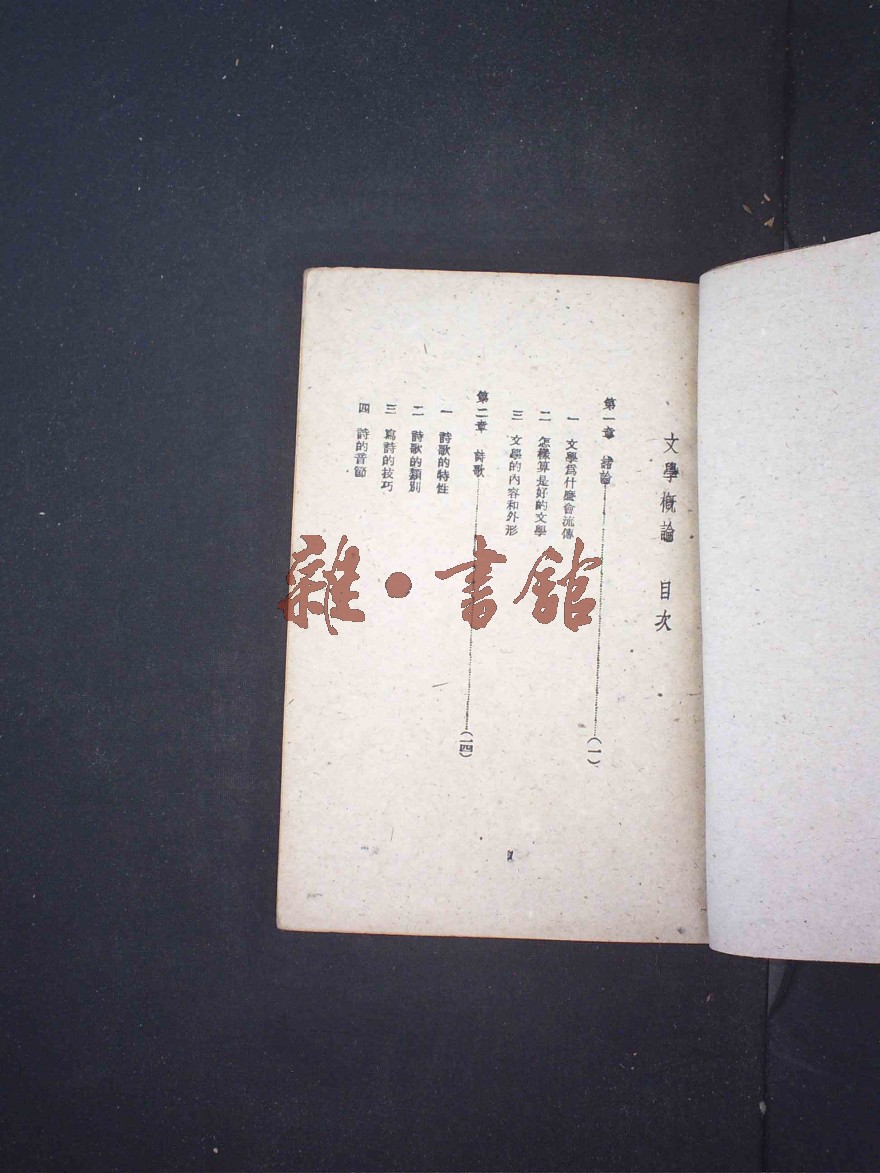 文學概論 目次
第一章 緒論………(一)
一 文學爲什麼會流傳
二 怎樣算是好的文學
三 文學的內容和外形
第二章 詩歌………(一四)
一 詩歌的特性
二 詩歌的類別
三 寫詩的技巧
四 詩的音節
雜·書館